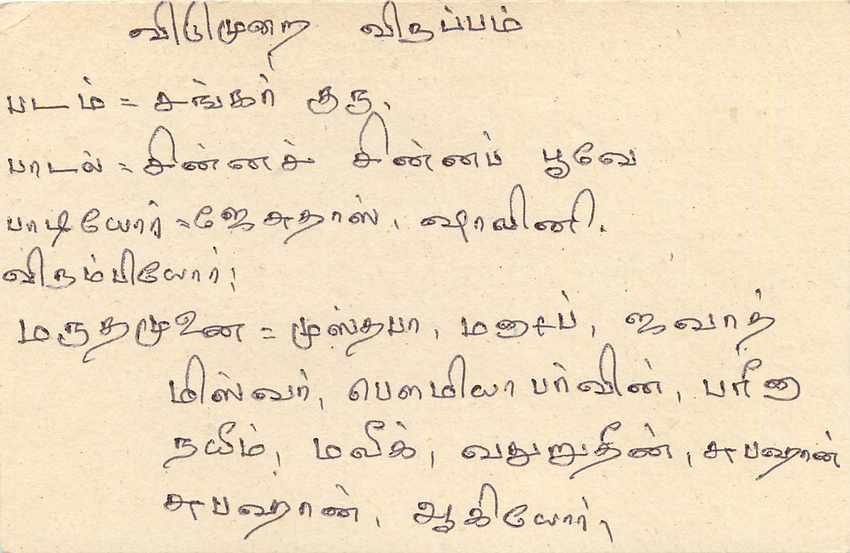 விடுமுறை விருப்பம்
படம் = சங்கர் குரு.
பாடல் = சின்னச் சின்னப் பூவே
பாடியோர் = ஜேசுதாஸ், ஷாலினி.
விரும்பியோர்;
மருதமுனை = முஸ்தபா, மனாப், ஜவாத்
மிஸ்வர், பௌமியா பர்வின், பரீனா
நயீம், மலீக், வதுறுதீன், சுபஹான்
சுபஹான், ஆகியோர்,